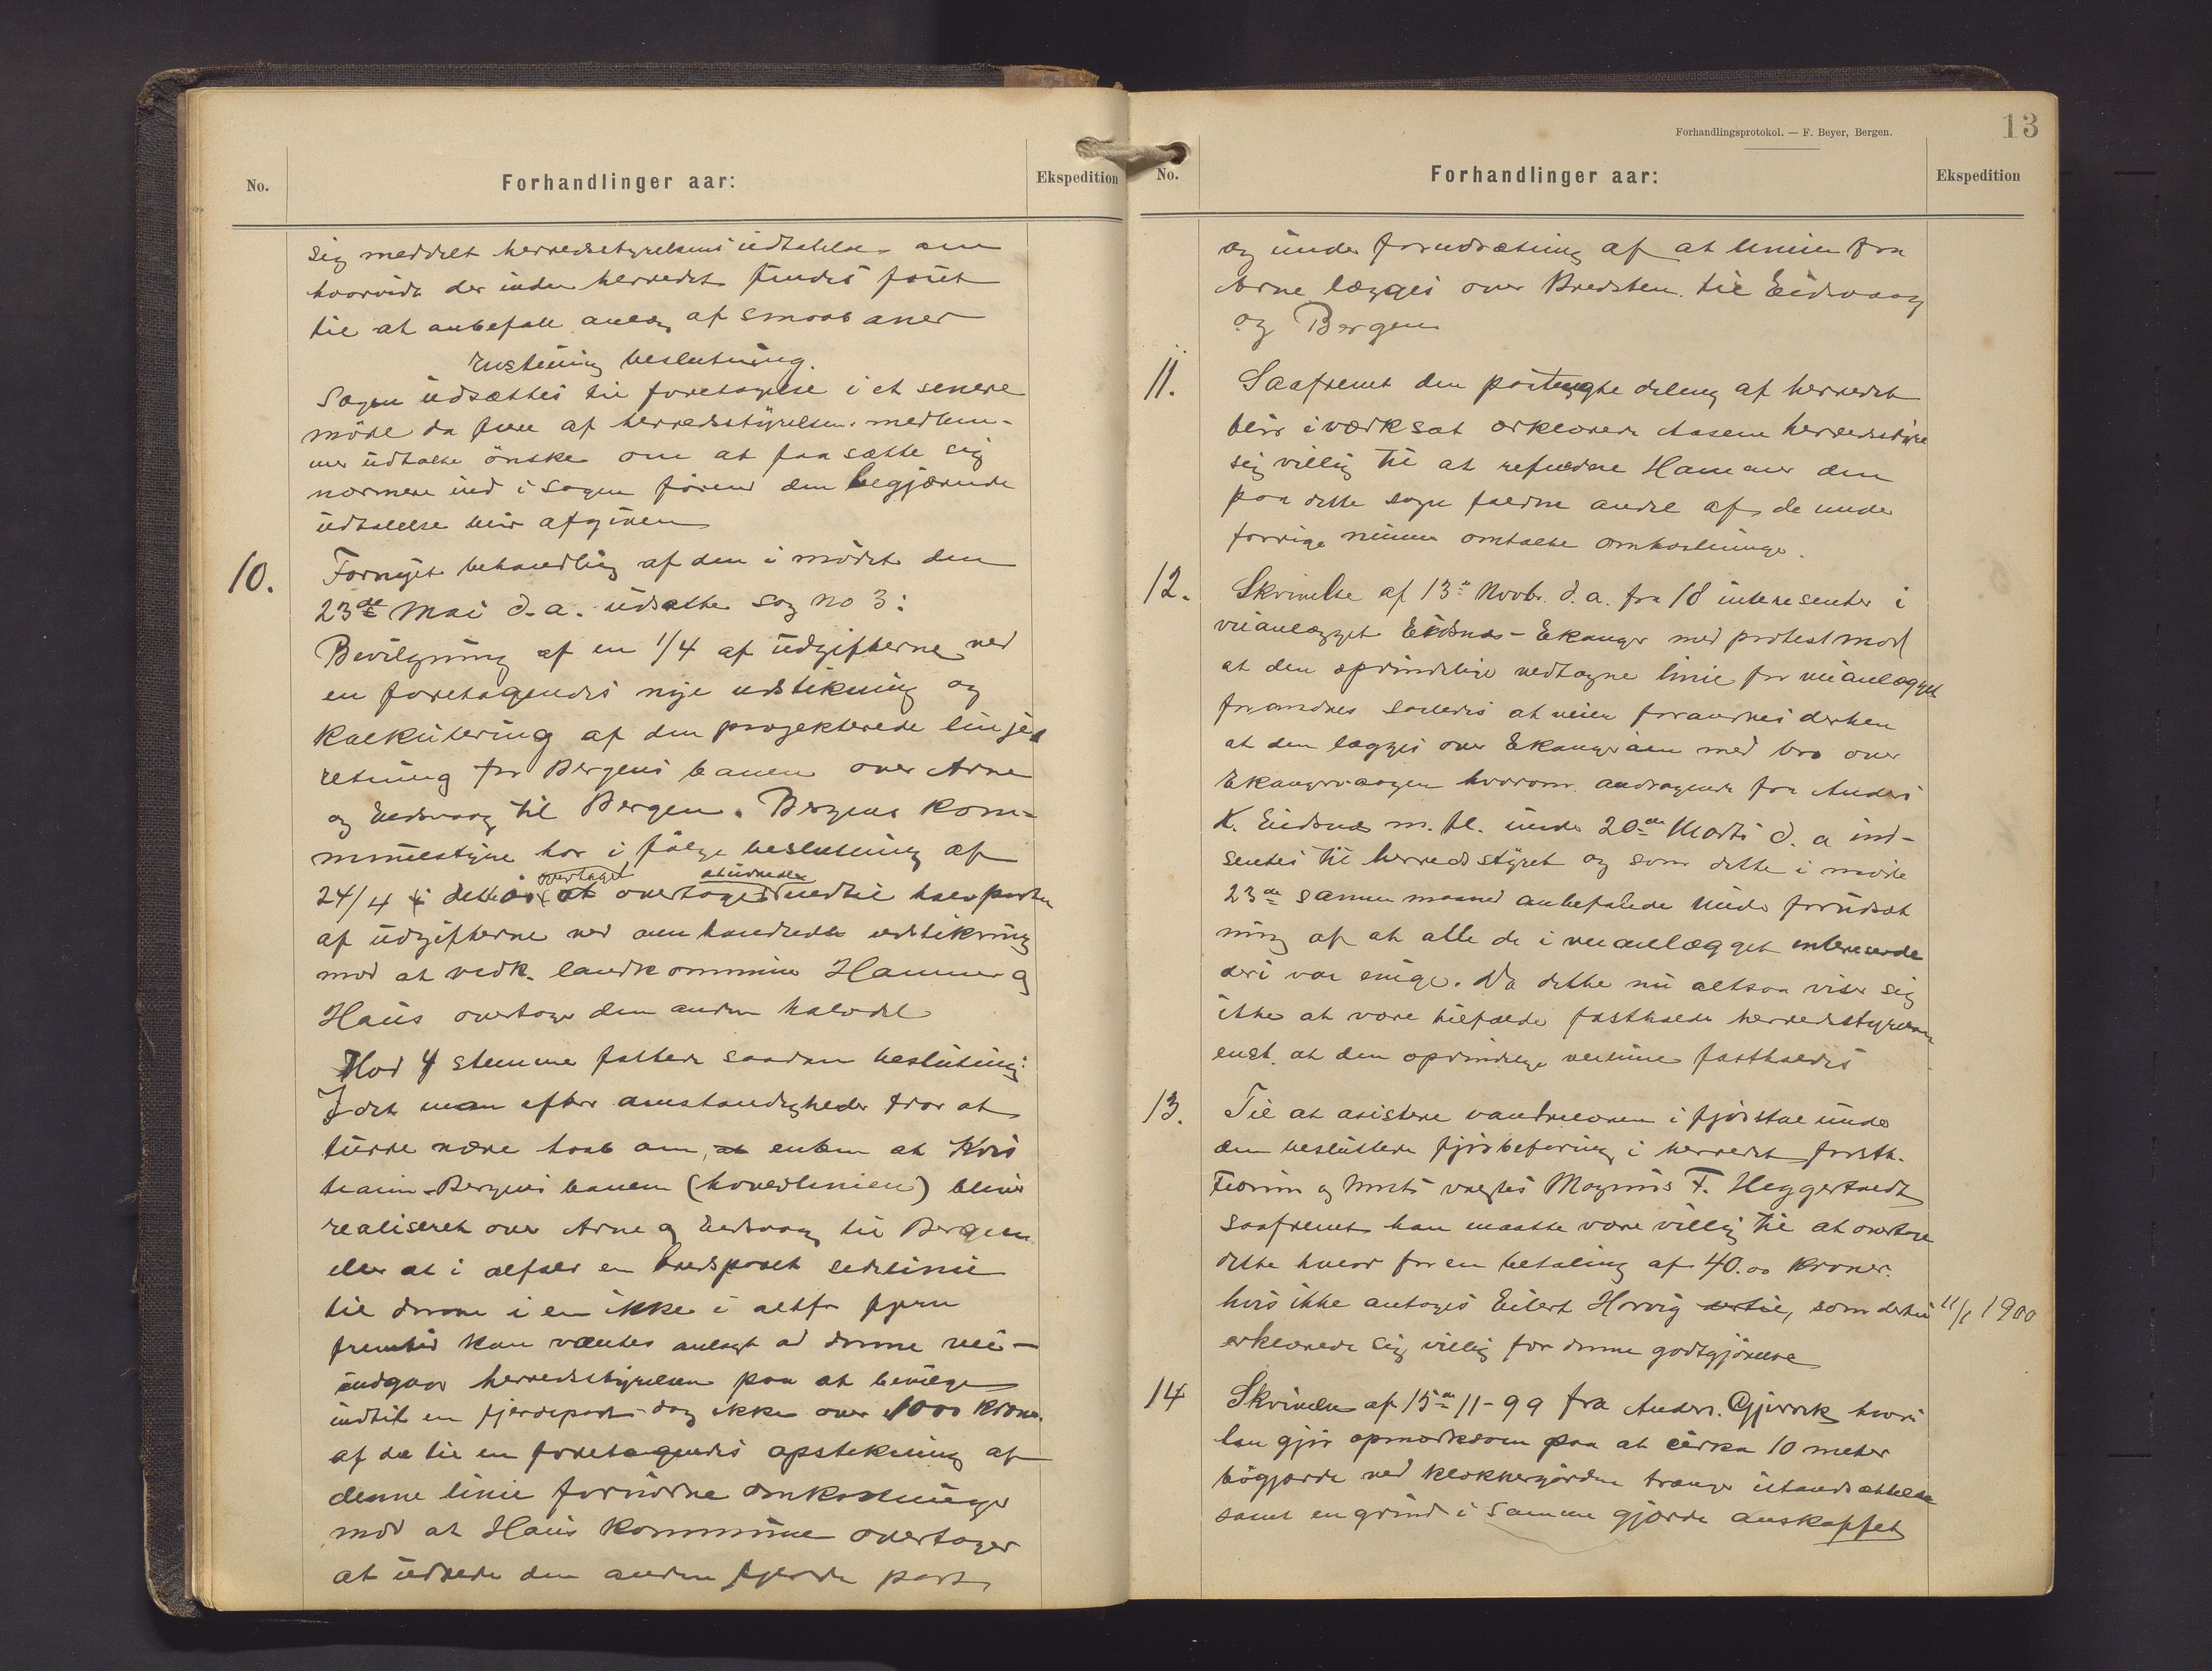 No.
Forhandlinger aar:
Ekspedition
sig meddelt herredsstyrelsens udtalelse om
hvorvidt der inden herredet findes
til at anbefale anlæg af smaabaner
Enstemmig beslutning.
Sagen udsættes til foretagelse i et senere
møde da flere af herredsstyrelsens medlem-
mer udtalte ønske om at faa sætte sig
nærmere ind i sagen førend den begjærende
udtalelse blir afgiven
10.
Fornyet behandling af den i mødet den
23de Mai d.a. udsatte sag no 3:
Bevilgning af en 1/4 af udgifterne ved
en foretagendes nye udstikning og
kalkulering af den projekterede linje
retning for Bergensbanen over Arne
og Eidsvaag til Bergen. Bergens kom-
munestyre har i følge beslutning af
24/4 i dette aar at overtaget overtaget at udrede indtil halvparten
af udgifterne ved omhandlede udstikning
mod at vedk. landkommune Hammer og
Haus overtager den anden halvdel
Mod 4 stemmer fattedes saadan beslutning:
I det man efter omstændigheder tror at
turde nære haab om, at enten at Kris
tiania-Bergensbanen (hovedlinien) bliver
realiseret over Arne og Eidsvaag til Bergen
eller at i alfald en bredsporet sidelinie
til denne i en ikke i altfor fjern
fremtid kan væntes anlagt ad denne vei—
indgaar herredsstyrelsen paa at bevilge
indtil en fjerdepart dog ikke over 1000 kroner
af de til en foretagendes opstikning af
denne linie fornødne omkostninger
mod at Haus kommune overtager
at udrede den anden fjerde part
Forhandlingsprotokol. — F. Beyer, Bergen.
13
No.
Forhandlinger aar:
Ekspedition
og under forudsætning af at linien fra
Arne lægges over Bredsten til Eidsvaag
og Bergen
11.
Saafremt den paatænkte deling af herredet
blir iværksat erklærede Aasene herredsstyre
sig villig til at refundere Hammer den
paa dette sogn faldne andel af de under
forrige nummer omtalte omkostninger.
12.
Skrivelse af 13de Novbr. d.a. fra 18 interesenter i
veianlægget Eidsnæs-Ekanger med protest mod
at den oprindelige vedtagne linie for veianlægget
forandres saaledes at veien forandres derhen
at den lægges over Ekangeraaen med bro over
Ekangervaagen hvorom andragende fra Anders
K. Eidsnæs m. fl. under 20de Marts d.a ind-
sendtes til herredsstyret og som dette i møde
23de samme maaned anbefalede under forudsæt
ning af at alle de i veianlægget interesserede
deri var enige. Da dette nu altsaa viser sig
ikke at være tilfælde fastholder herredsstyrelsen
enst. at den oprindelige veilinie fastholdes
13.
Til at asistere vandmeoren i fjøistæl under
den besluttede fjørbefaring i herredet førstk.
Februar og Marts valgtes Magnus F. Heggertveidt
saafremt han maatte være villig til at overtage
dette hverv for en betaling af 40.00 kroner.
hvis ikke antages Eilert Horvig dertil, som dertil
11/1 1900
erklærede sig villig for denne godtgjørelse
14
Skrivelse af 15de 11-99 fra Anders Gjervik hvori
han gjør opmærksom paa at cirka 10 meter
bøgjærde ved klokkergaarden trænger istandsættelse
samt en grind i samme gjærde anskaffet